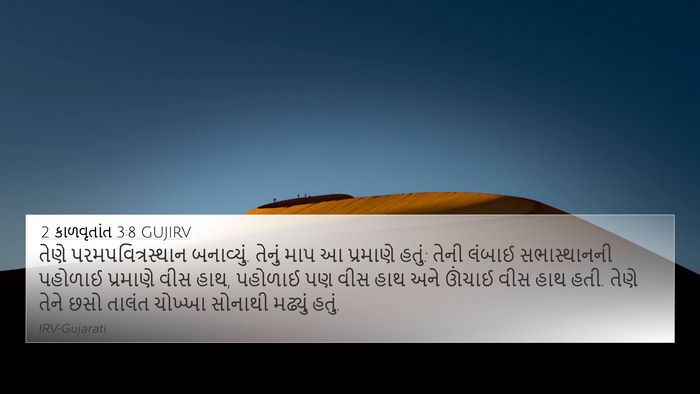 2 કાળવૃતાંત 3:8 GUJIRV
તેણે પરમપવિત્રસ્થાન બનાવ્યું. તેનું માપ આ પ્રમાણે હતું: તેની લંબાઈ સભાસ્થાનની
પહોળાઈ પ્રમાણે વીસ હાથ, પહોળાઈ પણ વીસ હાથ અને ઊંચાઈ વીસ હાથ હતી. તેણે
તેને છસો તાલંત ચોખ્ખા સોનાથી મઢ્યું હતું.
IRV-Gujarati